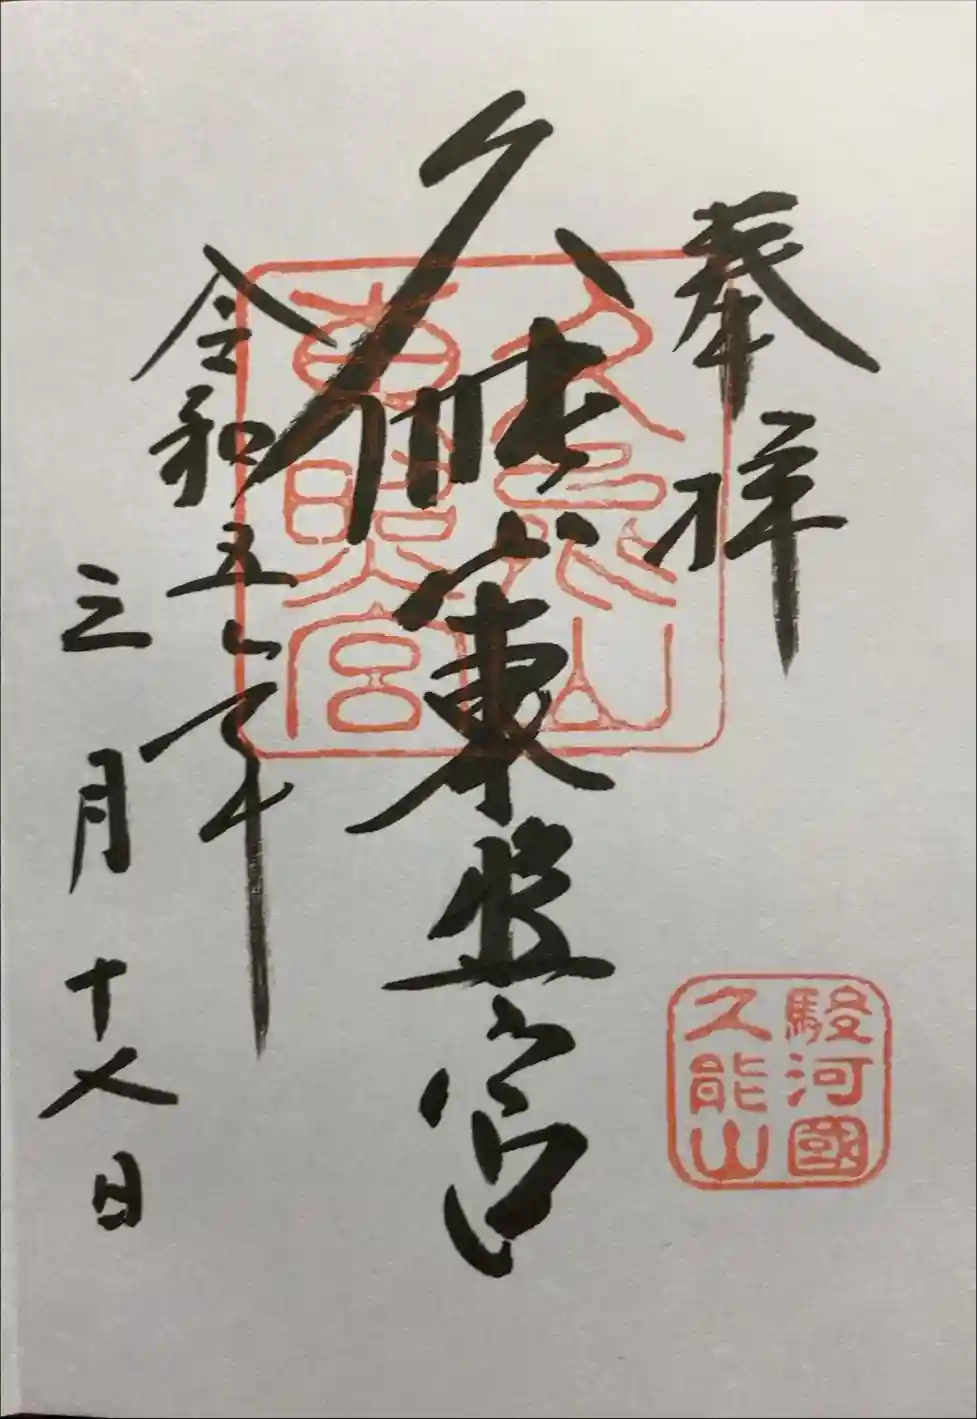 奉拝
駿河國
久能山
久能山東照宮
久能山
東照宮
令和五年
三月十八日